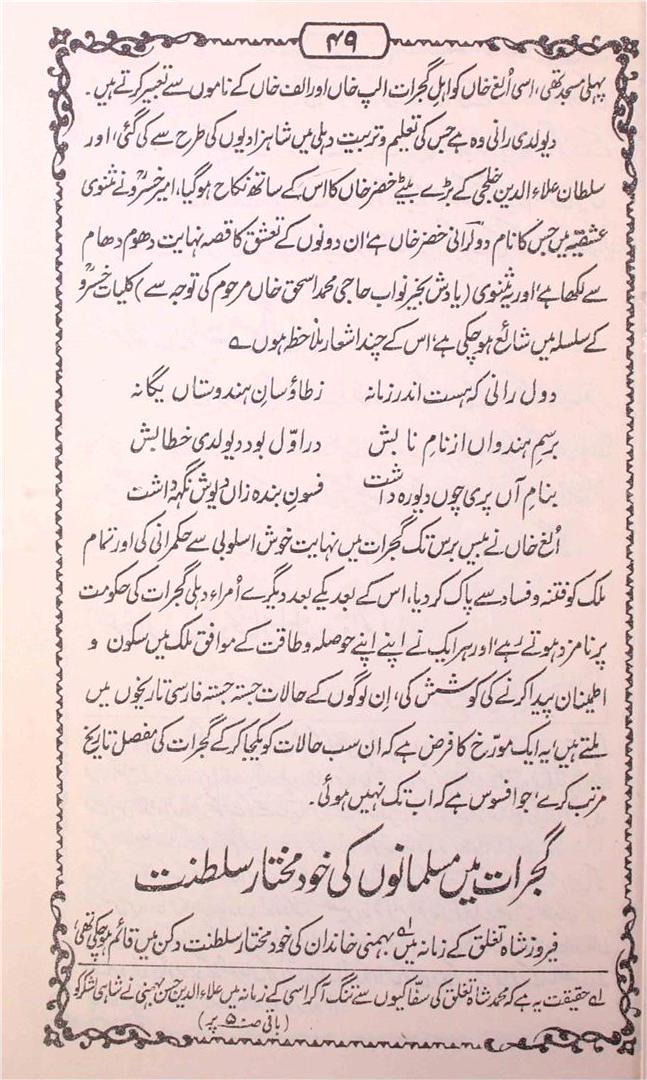 ۴۹
پہلی مسجد تھی، اسی اُلغ خاں کو اہل گجرات الپ خاں اور الف خاں کے ناموں سے تعبیر کرتے ہیں۔
دیولدی رانی وہ ہے جس کی تعلیم و تربیت دہلی میں شاہزادیوں کی طرح سے کی گئی، اور
سلطان علاء الدین خلجی کے بڑے بیٹے خضر خاں کا اس کے ساتھ نکاح ہوگیا، امیر خسروؒ نے مثنوی
عشقیہ میں جس کا نام دولرانی خضر خاں ہے، ان دونوں کے تعشق کا قصہ نہایت دھوم دھام
سے لکھا ہے، اور یہ مثنوی (یادش بخیر نواب حاجی محمد اسحٰق خاں مرحوم کی توجہ سے) کلیات خسروؒ
کے سلسلہ میں شائع ہوچکی ہے، اس کے چند اشعار ملاحظہ ہوں ؎
دول رانی کہ ہست اندر زمانہ زطاؤسانِ ہندوستاں یگانہ
برسمِ ہندواں از نام نابش دراوّل بود دیولدی خطابش
بنام آں پری چوں دیورہ داشت فسونِ بندہ زاں دیوش نگہداشت
اُلغ خاں نے بیس برس تک گجرات میں نہایت خوش اسلوبی سے حکمرانی کی اور تمام
ملک کو فتنہ و فساد سے پاک کردیا، اس کے بعد یکے بعد دیگرے اُمراء دہلی گجرات کی حکومت
پر نامزد ہوتے رہے، اور ہر ایک نے اپنے اپنے حوصلہ و طاقت کے موافق ملک میں سکون و
اطمینان پیدا کرنے کی کوشش کی، اِن لوگوں کے حالات جستہ جستہ فارسی تاریخوں میں
ملتے ہیں، یہ ایک مورّخ کا فرض ہے کہ ان سب حالات کو یکجا کرکے گجرات کی مفصل تاریخ
مرتب کرے، جو افسوس ہے کہ اب تک نہیں ہوئی۔
گجرات میں مسلمانوں کی خود مختار سلطنت
فیروز شاہ تغلق کے زمانہ میں ۱ے بہمنی خاندان کی خود مختار سلطنت دکن میں قائم ہوچکی تھی،
۱ے حقیقت یہ ہے کہ محمد شاہ تغلق کی سفّاکیوں سے تنگ آکر اسی کے زمانہ میں علاء الدین حسن بہمنی نے شاہی لشکر کو
(باقی صـ ۵۰ پر)